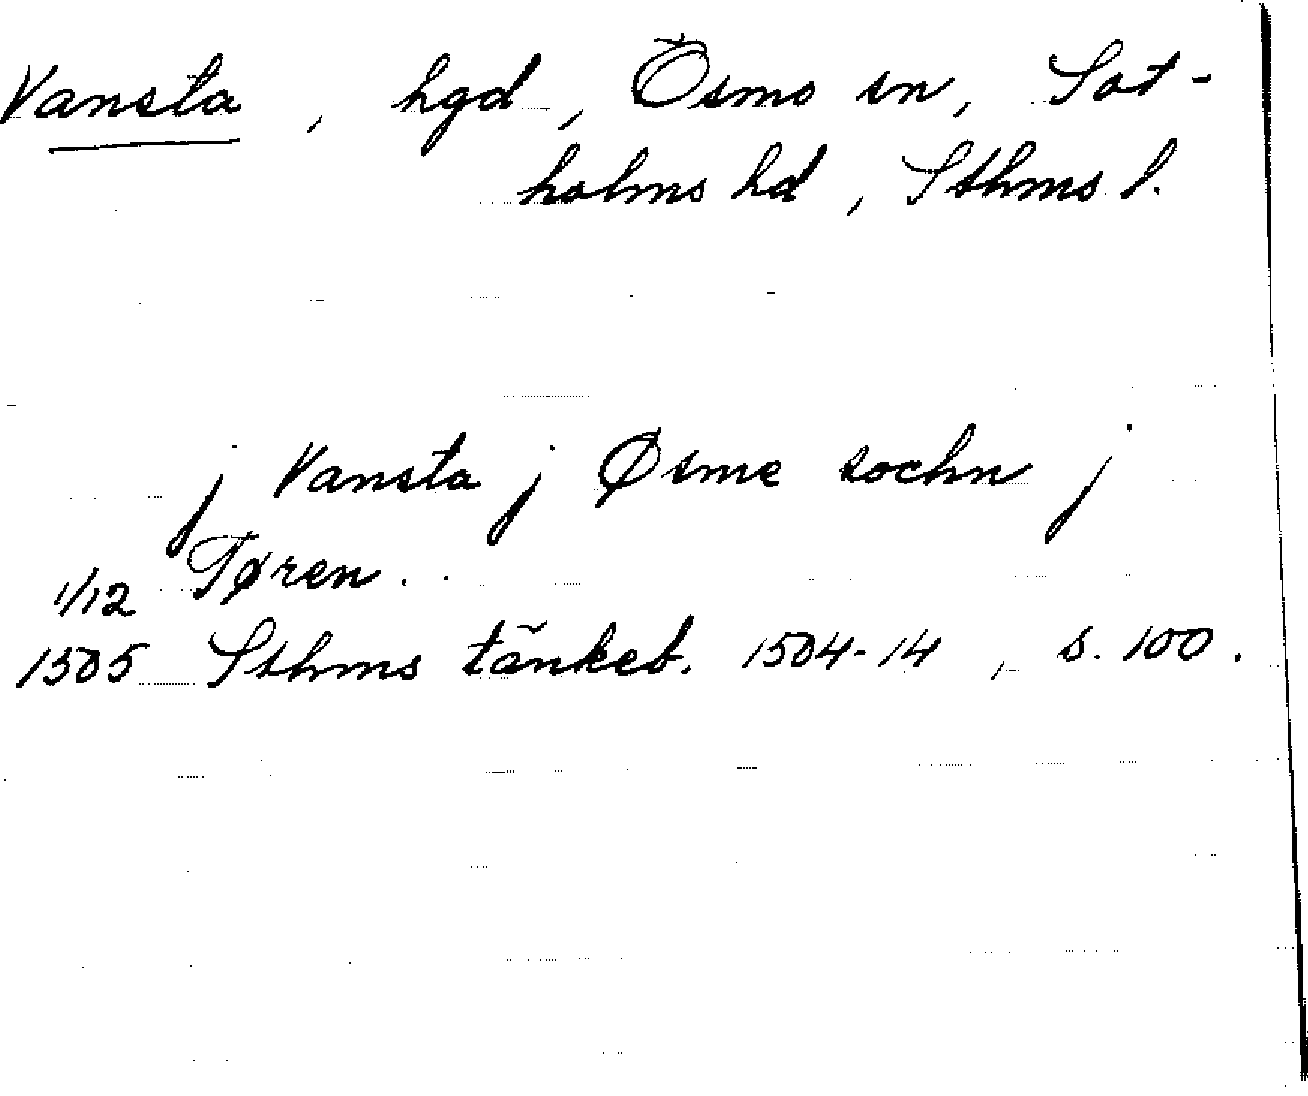 Vansta, hgd, Ösmo sn, Sot-
holms hd, Sthms l.
j Vansta j Øsme sochn j
Tøren.
1/12
1505 Sthms tänkeb. 1504-14, s. 100.